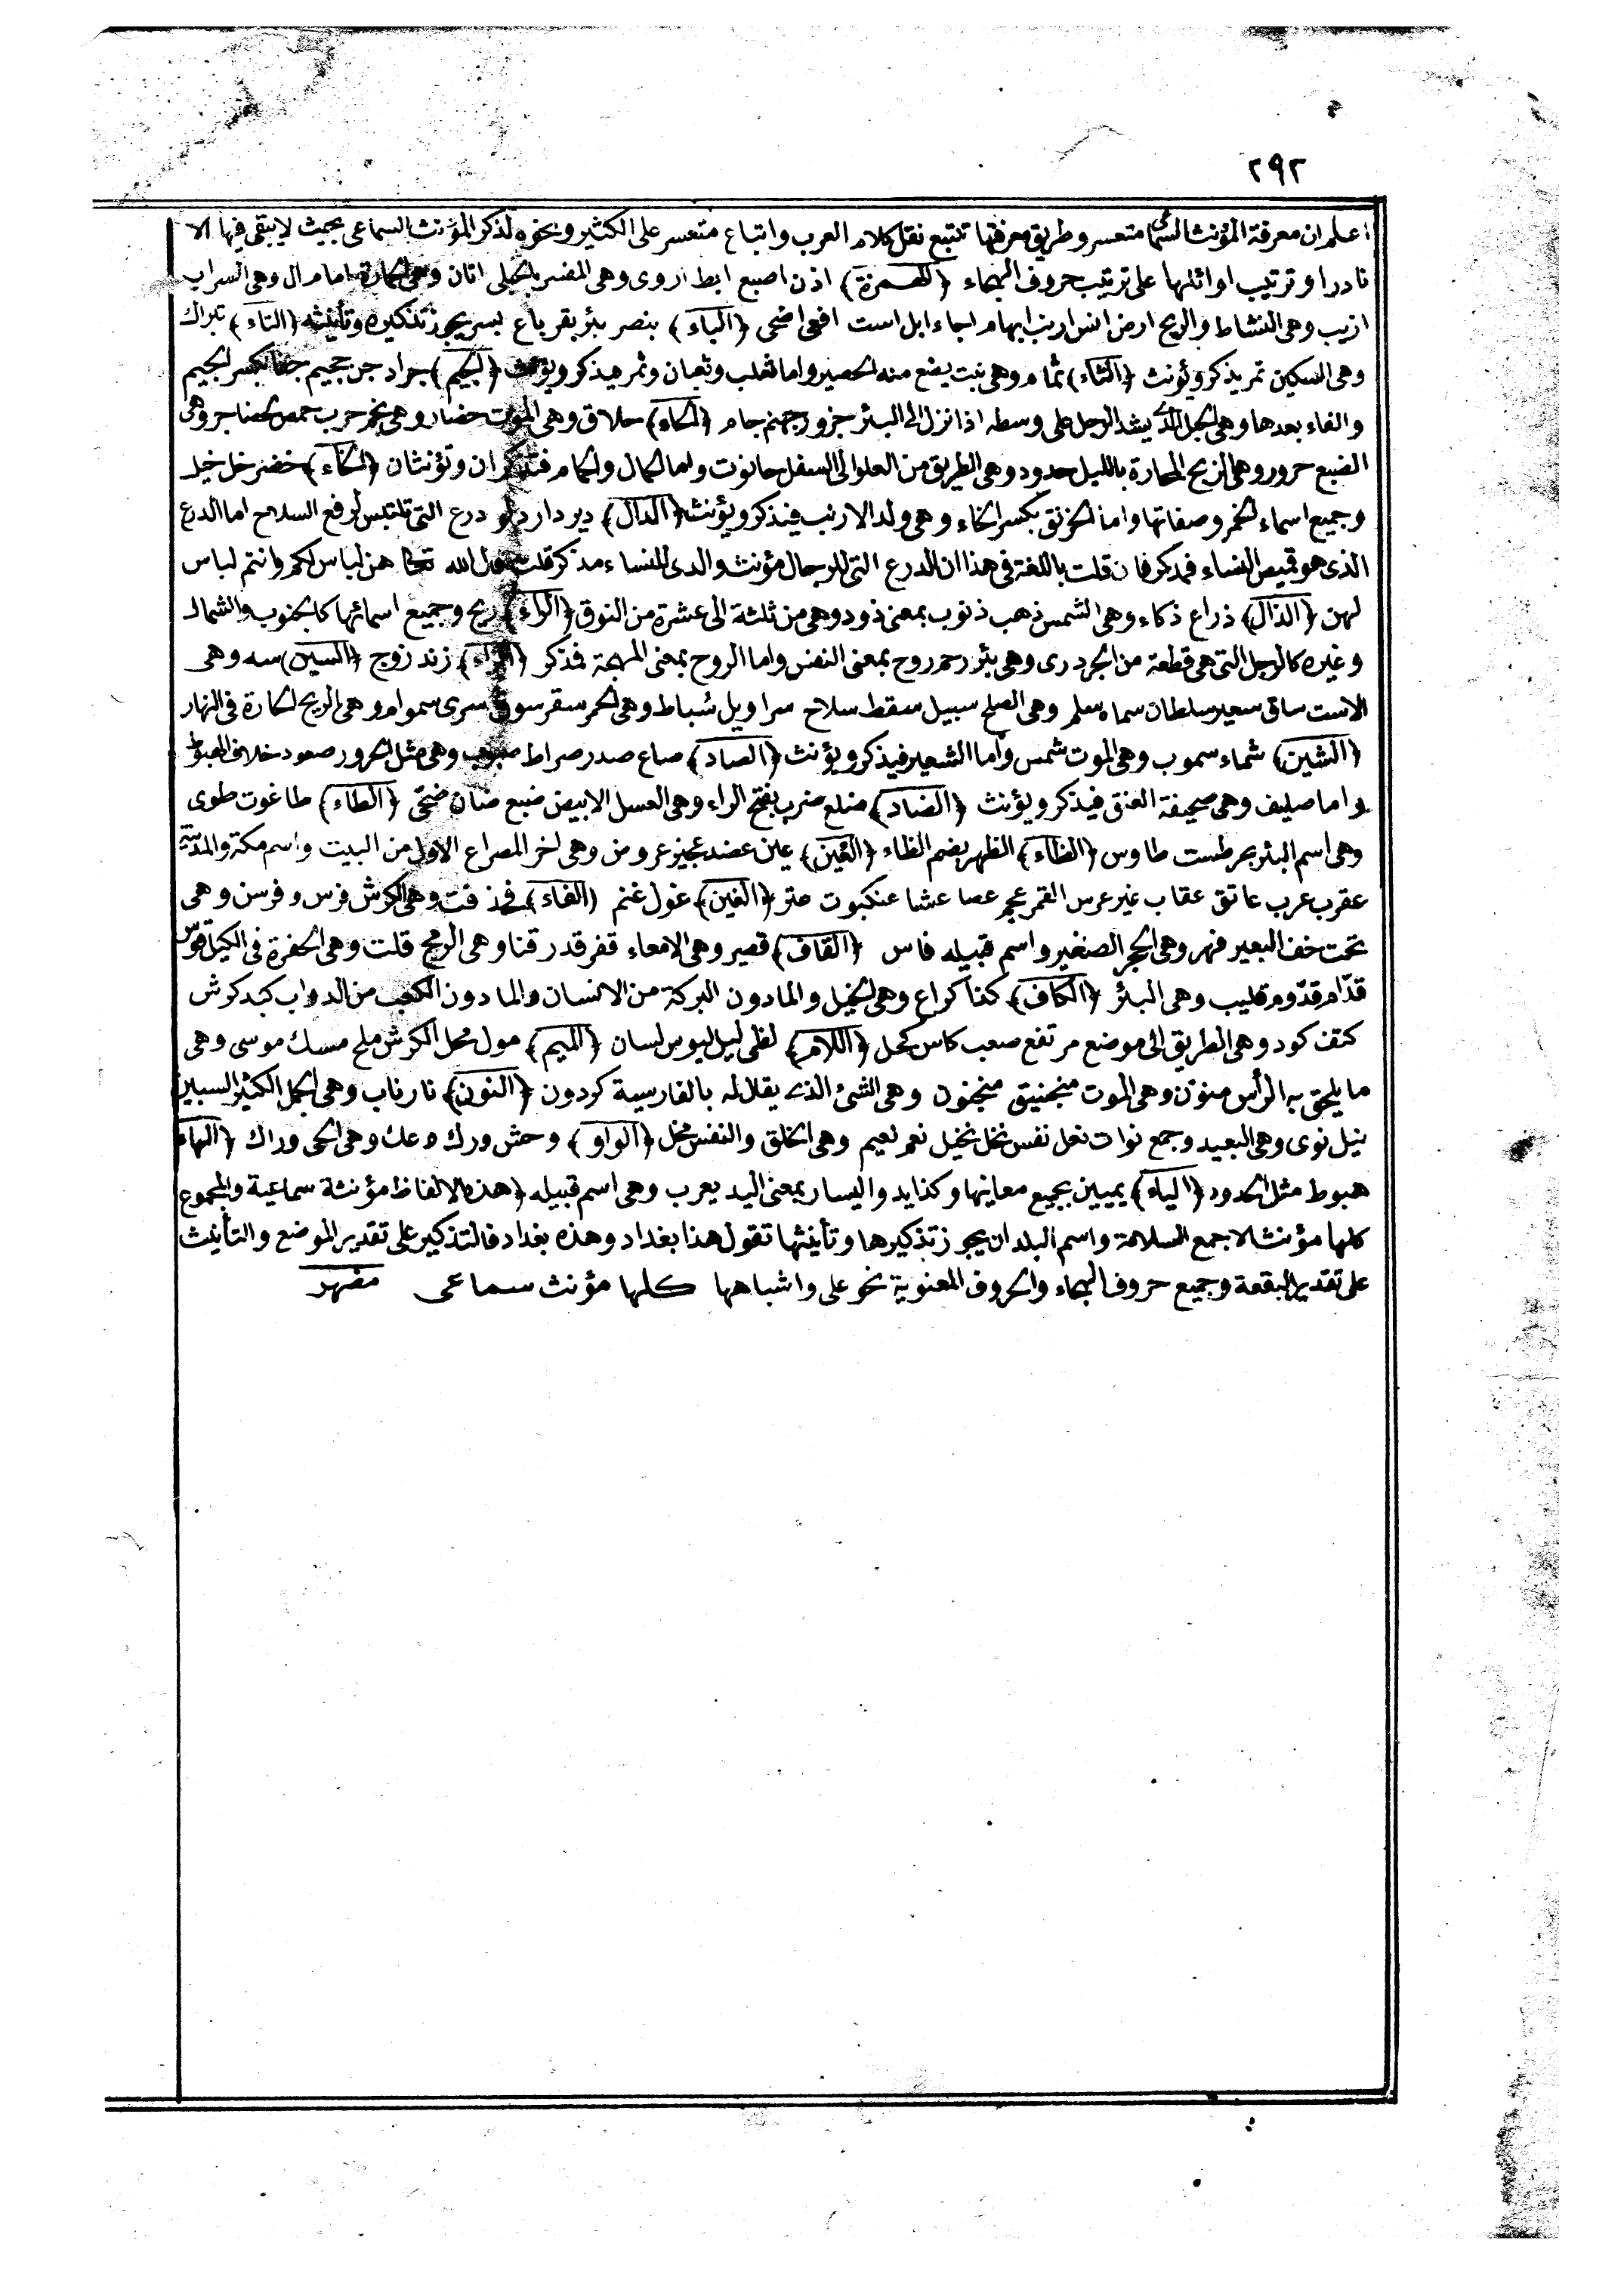 ٢٩٢
اعلم ان معرفة المؤنث السماعى متعسر وطريق معرفتها تتبع نقل كلام العرب واتباع متعسر على الكثير ونحوه لذكر المؤنث السماعى بحيث لا يبقى فيها الا
نادرا وترتيب اوائلها على ترتيب حروف الهجاء ﴿الهمزة﴾ اذن اصبع ابط اروى وهى المضر بالجبلى اتان وهى الحمارة امام ال وهى السراب
ازيب وهى النشاط والريح ارض انس ارنب ابهام اجاء ابل است افعى اضحى ﴿الباء﴾ بنصر بئر بقر باع بسر يجوز تذكيره وتأنيثه ﴿التاء﴾ تبراك
وهى السكين تمر يذكر ويؤنث ﴿الثاء﴾ ثمام وهى نبت يضع منه الحصير واما ثعلب وثعبان وثمر فيذكر ويؤنث ﴿الجيم﴾ جراد جن جحيم بكسر الجيم
والفاء بعدها وهى الحبل الذى يشد الرجل على وسطه اذا نزل الى البئر جزور جهنم جام ﴿الحاء﴾ حلاق وهى الموت حضار وهى نجم حرب حمص حضاجر وهى
الضبع حرور وهى الريح الحارة بالليل حدود وهى الطريق من العلو الى السفل حانوت واما الحال والحمام فتذكران وتؤنثان ﴿الخاء﴾ خضر خل خيل
وجميع اسماء الخمر وصفاتها واما الخرنق بكسر الخاء وهى ولد الارنب فيذكر ويؤنث ﴿الدال﴾ دبر دار دلو درع التى تلبس لرفع السلاح اما الدرع
الذى هو قميص النساء فمذكر فان قلت باللغة فى هذا ان الدرع التى للرجال مؤنث والذى للنساء مذكر قلت قول الله تعالى هن لباس لكم وانتم لباس
لهن ﴿الذال﴾ ذراع ذكاء وهى الشمس ذهب ذنوب بمعنى ذود وهى من ثلثة الى عشرة من النوق ﴿الراء﴾ ريح وجميع اسمائها كالجنوب والشمال
وغيره كالرجل التى هى قطعة من الجرد رى وهى بئر رحم روح بمعنى النفس واما الروح بمعنى المهجة فذكر ﴿الزاء﴾ زند زوج ﴿السين﴾ سه وهى
الاست ساق سعير سلطان سماء سلم وهى الصلح سبيل سقط سلاح سراويل سُباط وهى الحمر سقر سوق سرى سموام وهى الريح الحارة فى النهار
﴿الشين﴾ شماء سموب وهى الموت شمس واما الشعير فيذكر ويؤنث ﴿الصاد﴾ صاع صدر صراط وهى مثل الحرور صعود خلاف الهبوط
واما صليف وهى صحيفة العنق فيذكر ويؤنث ﴿الضاد﴾ ضلع ضرب بفتح الراء وهى العسل الابيض ضبع ضان ضحى ﴿الطاء﴾ طاغوت طوى
وهى اسم البئر بحر طست طاوس ﴿الظاء﴾ الظهر بضم الظاء ﴿العين﴾ عين عضد عجيز عروض وهى اخر المصراع الاول من البيت واسم مكة والمدينة
عقرب عرب عاتق عقاب عير عرس القمر عجم عصا عشا عنكبوت عنز ﴿الغين﴾ غول غنم ﴿الفاء﴾ فخذ فت وهى الكرش فرس وفرسن وهى
تحت خف البعير فهر وهى الحجر الصغير واسم قبيله فاس ﴿القاف﴾ قصير وهى الامعاء قفر قدر قنا وهى الرمح قلت وهى الحفرة فى الكيل قوس
قدّام قدّوم قليب وهى البئر ﴿الكاف﴾ كفا كراع وهى الخيل والمادون البركة من الانسان والمادون الكعب من الدواب كبد كرش
كتف كود وهى الطريق الى موضع مرتفع صعب كاس كحل ﴿اللام﴾ لظى ليل لبوس لسان ﴿الميم﴾ مول محل الكرش ملح مسك موسى وهى
ما يلحق به الرأس منون وهى الموت منجنيق منجنون وهى الشئ الذى يقلل له بالفارسية كردون ﴿النون﴾ نار ناب وهى الجمل الكثير السبين
نيل نوى وهى البعيد وجمع نوات نعل نفس نخل نخيل نعم نعيم وهى الخلق والنفس مخل ﴿الواو﴾ وحش ورك وعك وهى الحمى وراك ﴿الهاء
هبوط مثل الحدود ﴿الياء﴾ يمين بجميع معاينها وكذا يد واليسار بمعنى اليد يعرب وهى اسم قبيله ﴿هذه الالفاظ مؤنثة سماعية والجموع
كلها مؤنث الا جمع السلامة واسم البلدان يجوز تذكيرها وتأنيثها تقول هذا بغداد وهذه بغداد فالتذكير على تقدير الموضع والتأنيث
على تقدير البقعة وجميع حروف الهجاء والحروف المعنوية نحو على واشباهها كلها مؤنث سماعى